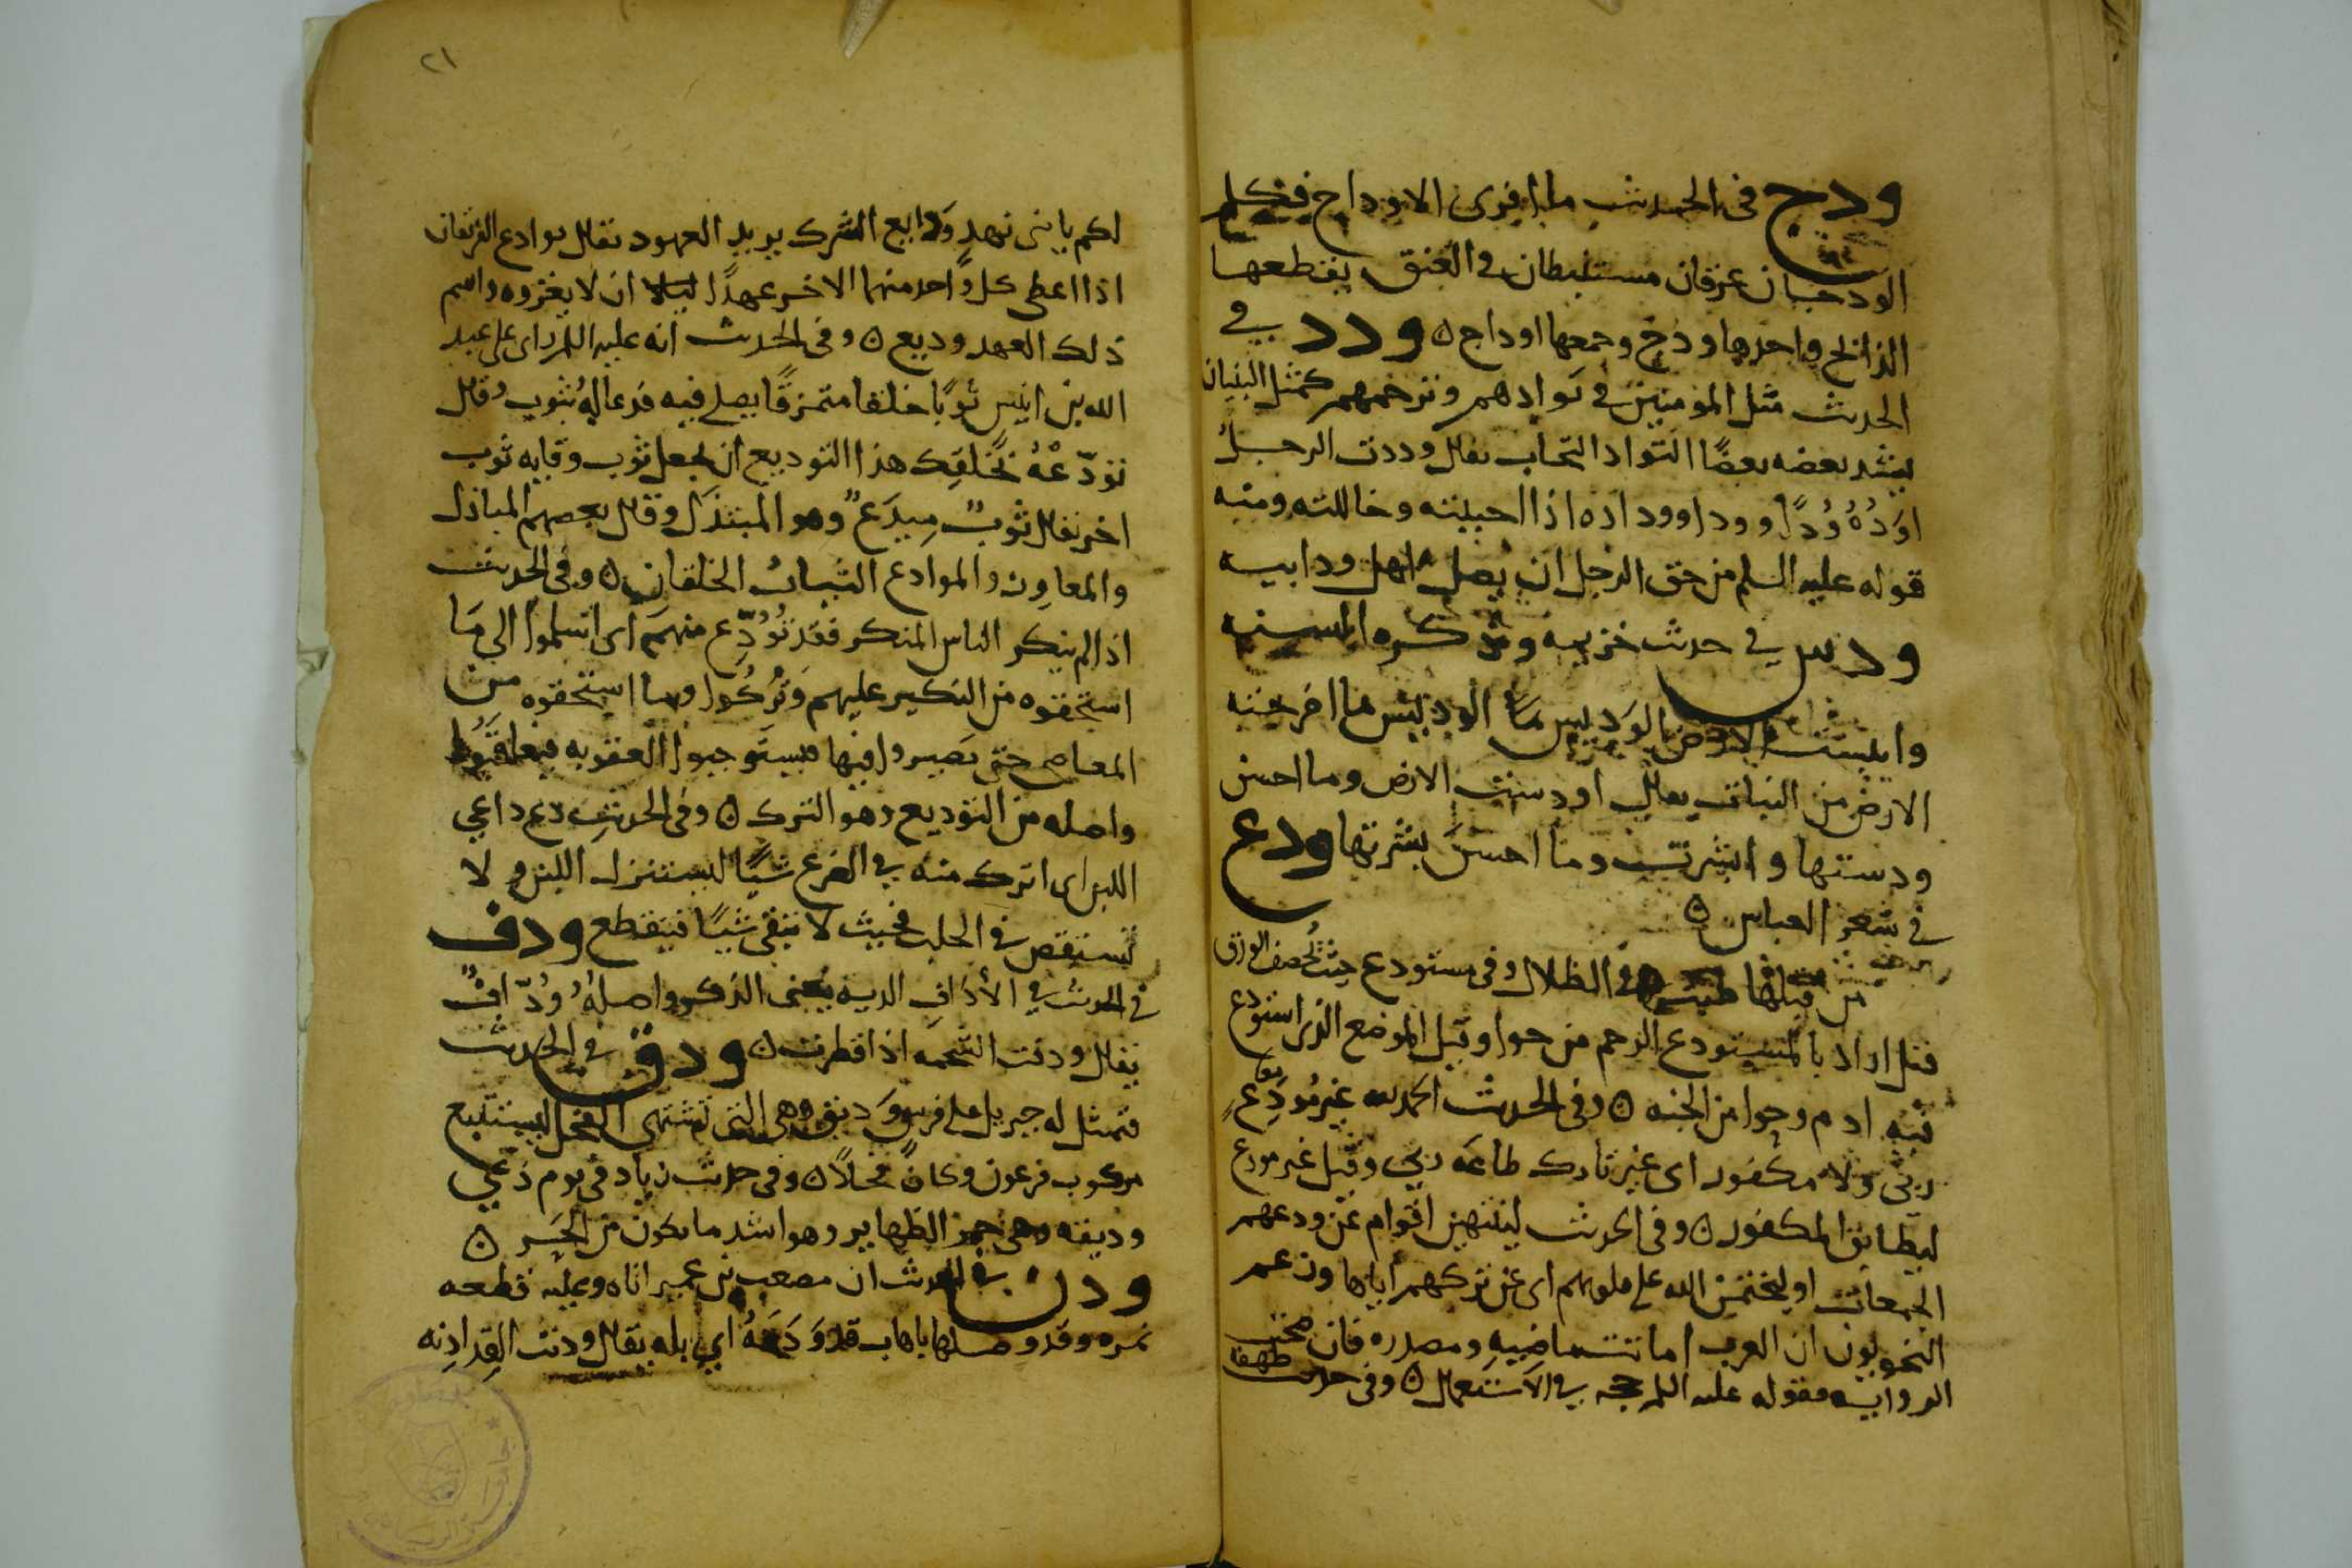 ودج في الحديث ما افرى الاوداج فكل
الودجان عرقان مستبطان في العنق يقطعها
الذابح واحدها ودج وجمعها اوداج ه ودد في
الحديث مثل المومنين في توادهم وتراحمهم كمثل البنيان
يشد بعضه بعضًا التواد التحاب يقال وددت الرجل
اوَدُهُ وُدًا وودا وودادة اذا احببته وخاللته ومنه
قوله عليه السلم من حق الرجل ان يصل اهل ود ابيه
ودس في حديث خزيمه وذكره السنه
وايبست الارض الوديس الوديس ما اخرجته
الارض من النبات يقال اودست الارض وما احسن
ودستها وابشرت وما احسن بشرتها ودع
في شعر العباس ه
من قبلها طبت في الظلال وفي مستودع حيث يُخصف الورق
قيل اراد بالمستودع الرحم من حوا وقيل الموضع الذي استودع
فيه ادم وحوا من الجنه ه وفي الحديث الحمد لله غير مُودِّعٍ
ربي ولا مكفور اي غير تارك طاعه ربي وقيل غير مودع
ليطابق المكفور ه وفي الحديث لينتهين اقوام عن ودعهم
الجمعات او ليختمن الله على قلوبهم اي عن تركهم اياها وزعم
النحويون ان العرب اماتت ماضيه ومصدره فان صحت
الروايه فقوله عليه السلم حجه في الاستعمال ه وفي حديث طهفه
٢١
لكم يا بني نهدٍ وَدايع الشرك يريد العهود يقال توادع الفريقان
اذا اعطى كل واحد منهما الاخر عهدًا ان لا يغزوه واسم
ذلك العهد وديع ه وفي الحديث انه عليه السلم راى على عبد
الله بن انيس ثوبًا خلقا متمزقًا يصلي فيه فدعا له بثوب وقال
تودّعْهُ بخَلَقِك هذا التوديع ان يجعل ثوب وقايه ثوب
اخر يقال ثوبٌ مِيدَعٌ وهو المبتذل وقال بعضهم المباذل
والمعاوز والموادع الثياب الخلقان ه وفي الحديث
اذا لم ينكر الناس المنكر فقد تُوُدِّع منهم اي اسلموا الى ما
استحقوه من النكير عليهم وتُرِكُوا وما استحقوه من
المعاصي حتى يصيروا فيها فيستوجبوا العقوبه فيعاقبوا
واصله من التوديع وهو الترك ه وفي الحديث دع داعي
اللبن اي اترك منه في الضرع شيًا ليستنزل اللبن ولا
تستقص في الحلب بحيث لا تبقي شيًا فينقطع ودف
في الحديث في الأُداف الديه يعني الذكر واصلهُ وُدَافٌ
يقال ودفت الشحمه اذا قطرت ه ودق في الحديث
فتمثل له جبريل على فرسٍ وَديق وهي التي تشتهي الفحل ليستتبع
مركوب فرعون وكان فحلًا ه وفي حديث زياد في يوم ذي
وديقه وهي حر الظهاير وهو اشد ما يكون من الحَر ه
ودن في الحديث ان مصعب بن عمير اتاه وعليه قطعه
نمره وقد وصلها باهاب قد وَدَنَهُ اي بله يقال ودنت القِد ادِنه